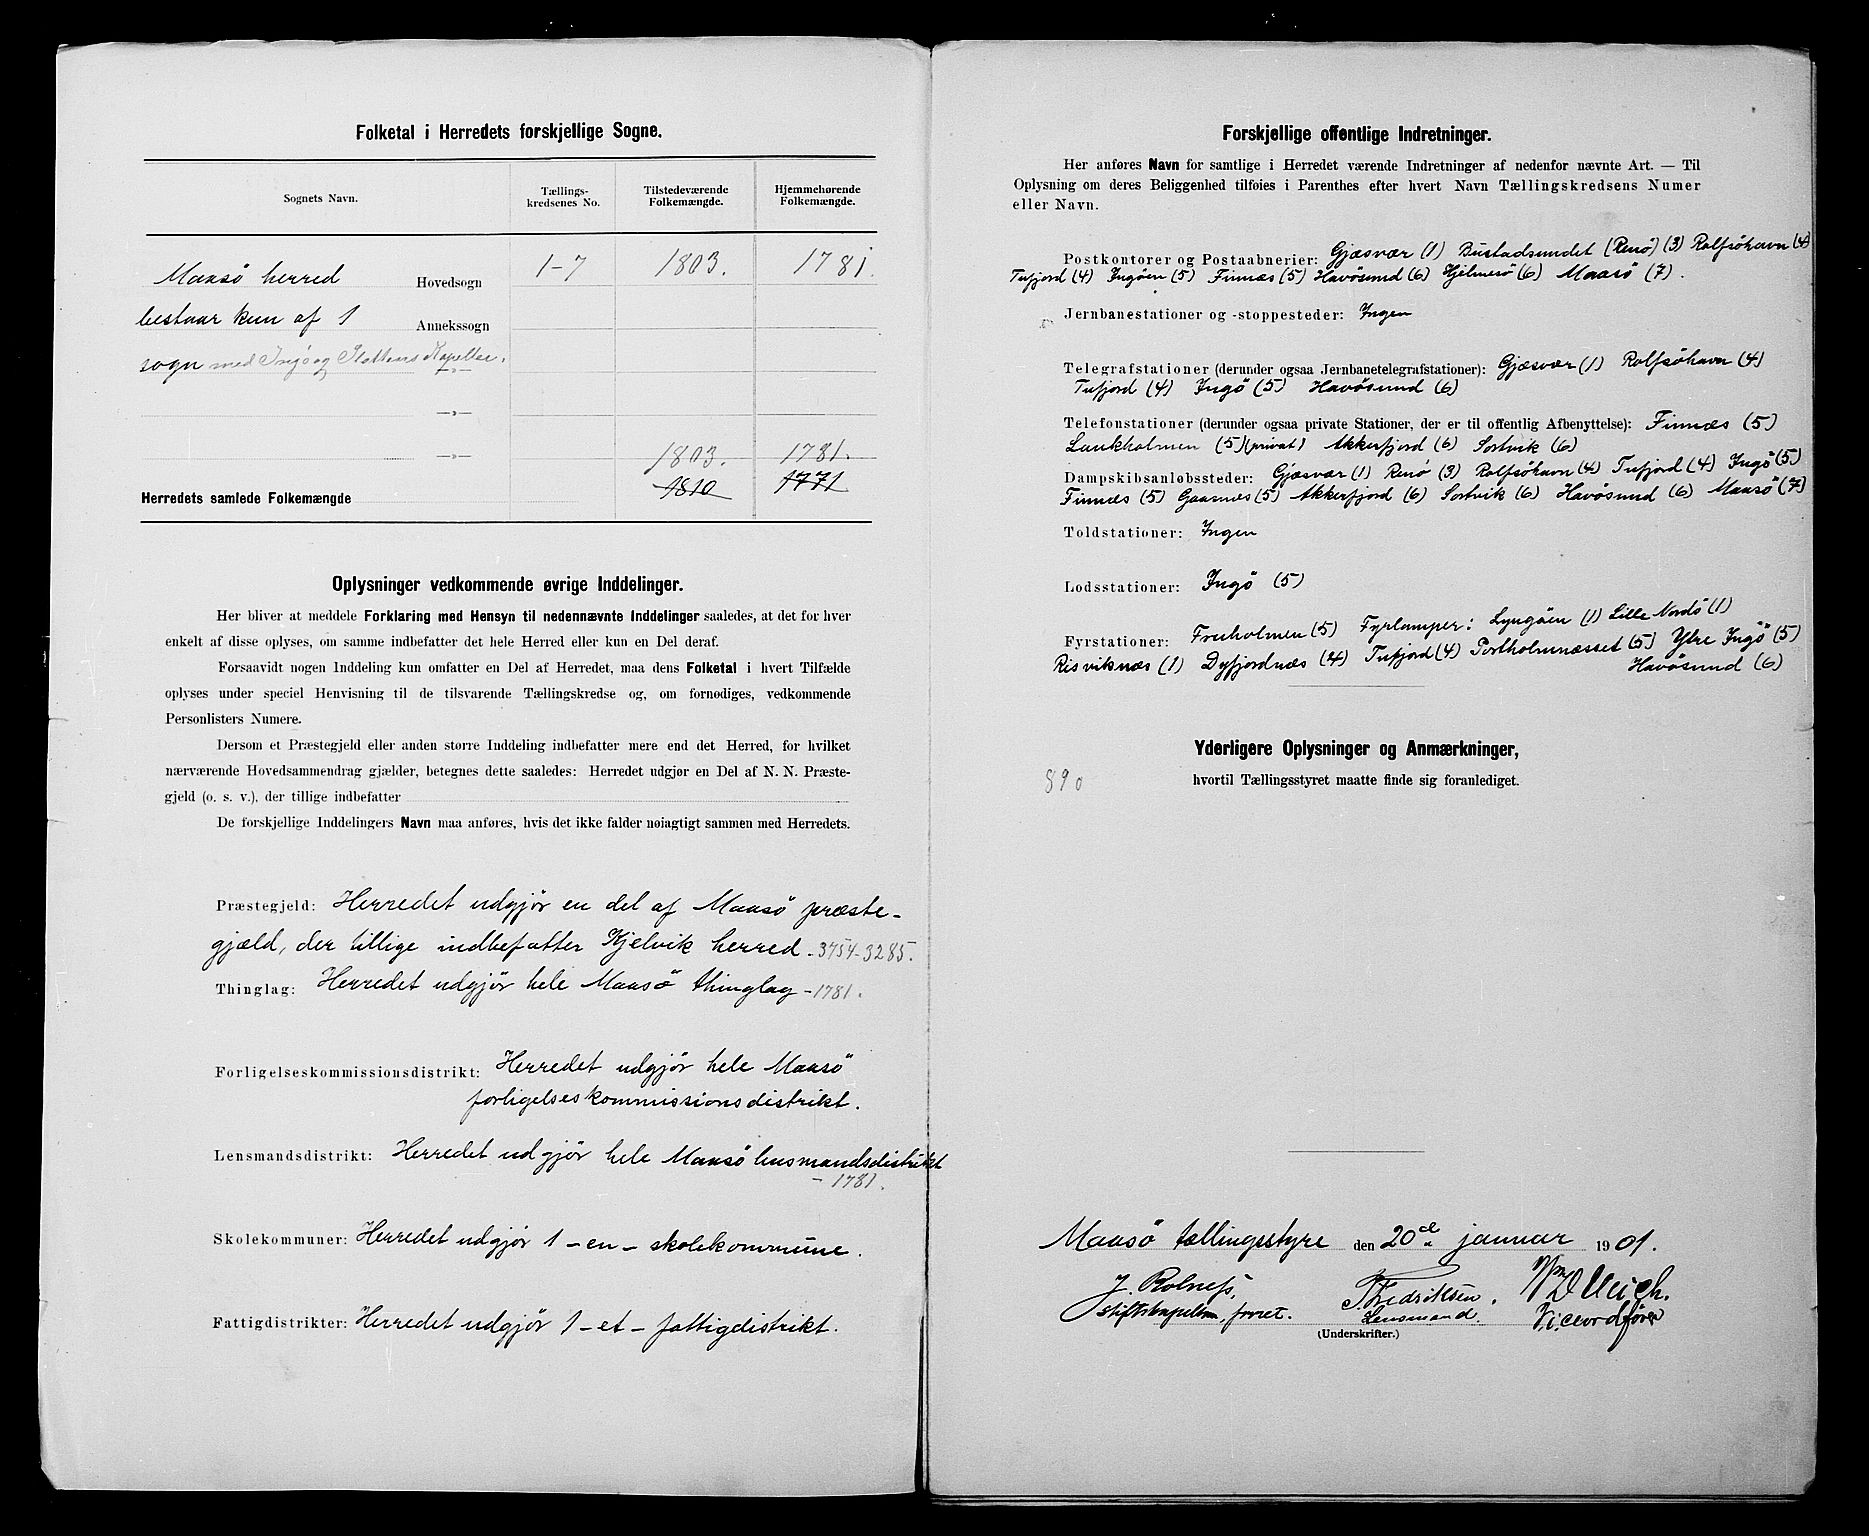 Folketal i Herredets forskjellige Sogne.
Sognets Navn.
Tællings-
kredsenes No.
Tilstedeværende
Folkemængde.
Hjemmehørende
Folkemængde.
Maasö herred Hovedsogn 1-7 1803. 1781.
bestaar kun af 1 Annekssogn
sogn med Ingö og Slottens Kapeller. —»—
—»—
—»— 1803. 1781.
Herredets samlede Folkemængde 1810 1771
Oplysninger vedkommende øvrige Inddelinger.
Her bliver at meddele Forklaring med Hensyn til nedennævnte Inddelinger saaledes, at det for hver
enkelt af disse oplyses, om samme indbefatter det hele Herred eller kun en Del deraf.
Forsaavidt nogen Inddeling kun omfatter en Del af Herredet, maa dens Folketal i hvert Tilfælde
oplyses under speciel Henvisning til de tilsvarende Tællingskredse og, om fornødiges, vedkommende
Personlisters Numere.
Dersom et Præstegjeld eller anden større Inddeling indbefatter mere end det Herred, for hvilket
nærværende Hovedsammendrag gjælder, betegnes dette saaledes: Herredet udgjør en Del af N. N. Præste-
gjeld (o. s. v.), der tillige indbefatter
De forskjellige Inddelingers Navn maa anføres, hvis det ikke falder nøiagtigt sammen med Herredets.
Præstegjeld: Herredet udgjør en del af Maasö præste-
gjæld, der tillige indbefatter Kjelvik herred - 3754-3285.
Thinglag: Herredet udgjør hele Maasö thinglag - 1781.
Forligelseskommissionsdistrikt: Herredet udgjør hele Maasö
forligelseskommissionsdistrikt.
Lensmandsdistrikt: Herredet udgjør hele Maasö lensmandsdistrikt
- 1781.
Skolekommuner: Herredet udgjør 1 - en - skolekommune.
Fattigdistrikter: Herredet udgjør 1 - et - fattigdistrikt.
Forskjellige offentlige Indretninger.
Her anføres Navn for samtlige i Herredet værende Indretninger af nedenfor nævnte Art. — Til
Oplysning om deres Beliggenhed tilføies i Parenthes efter hvert Navn Tællingskredsens Numer
eller Navn.
Postkontorer og Postaabnerier: Gjæsvær (1) Bustadsundet (Renö) (3) Rolfsöhavn (4)
Tufjord (4) Ingöen (5) Finnæs (5) Havösund (6) Hjelmesö (6) Maasö (7).
Jernbanestationer og -stoppesteder: Ingen
Telegrafstationer (derunder ogsaa Jernbanetelegrafstationer): Gjæsvær (1) Rolfsöhavn (4)
Tufjord (4) Ingö (5) Havösund (6)
Telefonstationer (derunder ogsaa private Stationer, der er til offentlig Afbenyttelse): Finnæs (5)
Lankholmen (5) (privat) Akkerfjord (6) Sortvik (6)
Dampskibsanløbssteder: Gjæsvær (1) Renö (3) Rolfsöhavn (4) Tufjord (4) Ingö (5)
Finnæs (5) Gaasnæs (5) Akkerfjord (6) Sortvik (6) Havösund (6) Maasö (7)
Toldstationer: Ingen
Lodsstationer: Ingö (5)
Fyrstationer: Fruholmen (5) Fyrlamper: Lyngöen (1) Lille Nordö (1)
Risviknæs (1) Dyfjordnæs (4) Tufjord (4) Portholmnæsset (5) Ytre Ingö (5)
Havösund (6)
Yderligere Oplysninger og Anmærkninger,
hvortil Tællingsstyret maatte finde sig foranlediget.
890
Maasö tællingsstyre den 20de januar 1901.
J. Rolness, Fredriksen. Ullrich.
stiftskapellan, forret. Lensmand. Viceordfører
(Underskrifter.)